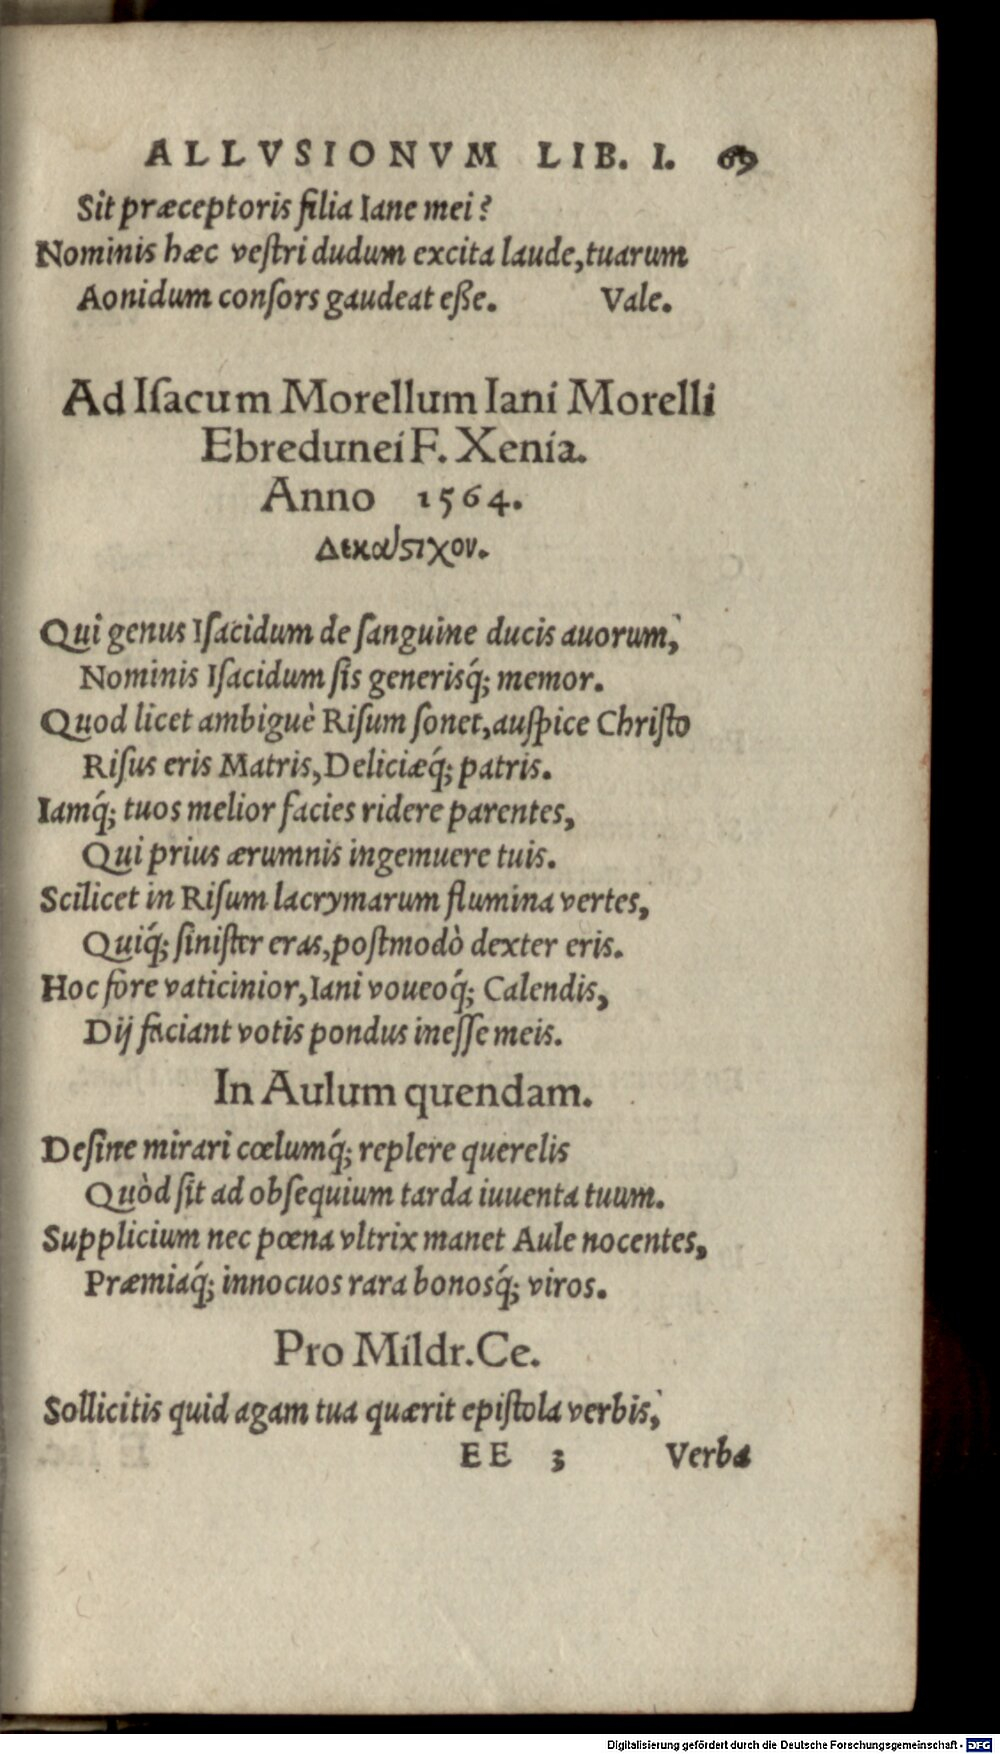 ALLVSIONVM LIB. I. 69
Sit præceptoris filia Iane mei?
Nominis hæc veſtri dudum excita laude,tuarum
Aonidum conſors gaudeat eße. Vale.
Ad Iſacum Morellum Iani Morelli
Ebredunei F. Xenia.
Anno 1564.
Δεκάϛιχον.
Qui genus Iſacidum de ſanguine ducis auorum,
Nominis Iſacidum ſis generisq́; memor.
Quod licet ambiguè Riſum ſonet,auſpice Chriſto
Riſus eris Matris,Deliciæq́; patris.
Iamq́; tuos melior facies ridere parentes,
Qui prius ærumnis ingemuere tuis.
Scilicet in Riſum lacrymarum flumina vertes,
Quiq́; ſiniſter eras,poſtmodò dexter eris.
Hoc fore vaticinior,Iani voueoq́; Calendis,
Dij faciant votis pondus ineſſe meis.
In Aulum quendam.
Deſine mirari cœlumq́; replere querelis
Quòd ſit ad obſequium tarda iuuenta tuum.
Supplicium nec pœna vltrix manet Aule nocentes,
Præmiaq́; innocuos rara bonosq́; viros.
Pro Mildr.Ce.
Sollicitis quid agam tua quærit epiſtola verbis,
EE 3 Verba
Digitalisierung gefördert durch die Deutsche Forschungsgemeinschaft - DFG